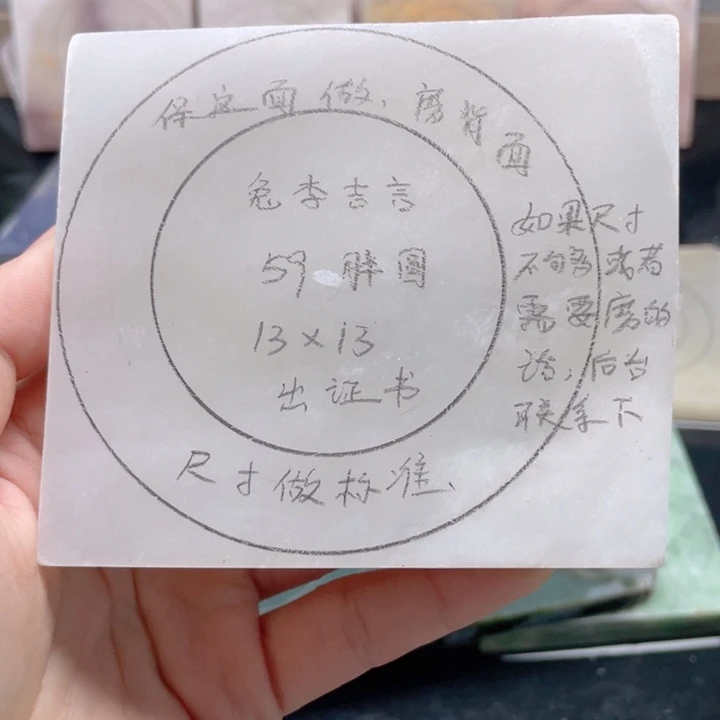 保这面做、磨背面
兔李吉言
59 胖圆
13×13
出证书
尺寸做标准、
如果尺寸
不够或者
需要磨的
话，后台
联系下